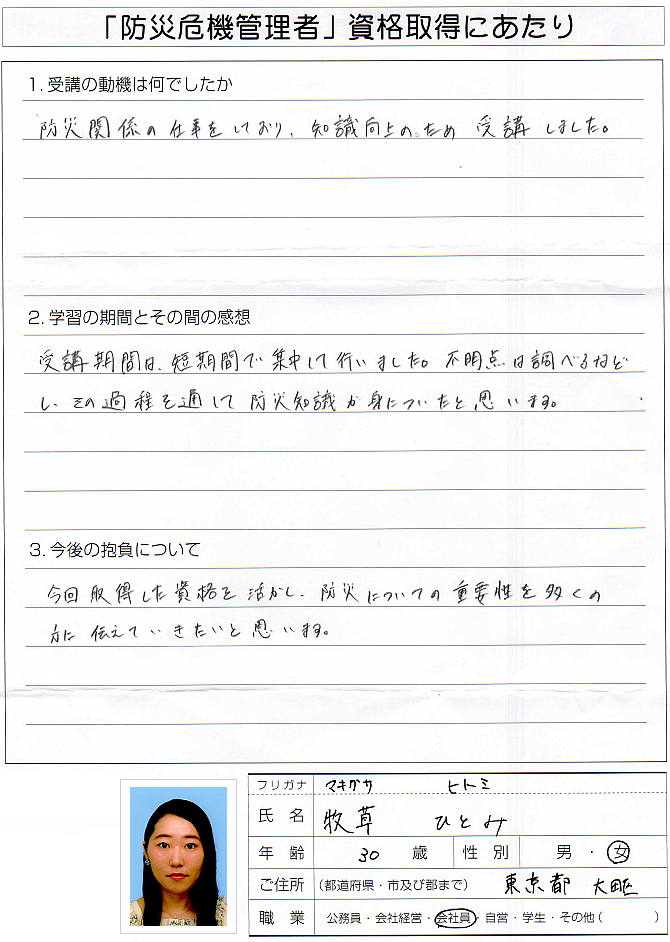 「防災危機管理者」資格取得にあたり
1. 受講の動機は何でしたか
防災関係の仕事をしており、知識向上のため 受講しました。
2. 学習の期間とその間の感想
受講期間は、短期間で集中して行いました。不明点は調べるなど
し、その過程を通して防災知識が身についたと思います。
3. 今後の抱負について
今回取得した資格を活かし、防災についての重要性を多くの
方に伝えていきたいと思います。
フリガナ マキグサ ヒトミ
氏 名 牧草 ひとみ
年 齢 30 歳 性 別 男 ・ 女
ご住所 (都道府県・市及び郡まで) 東京都 大田区
職 業 公務員・会社経営・会社員・自営・学生・その他 ( )